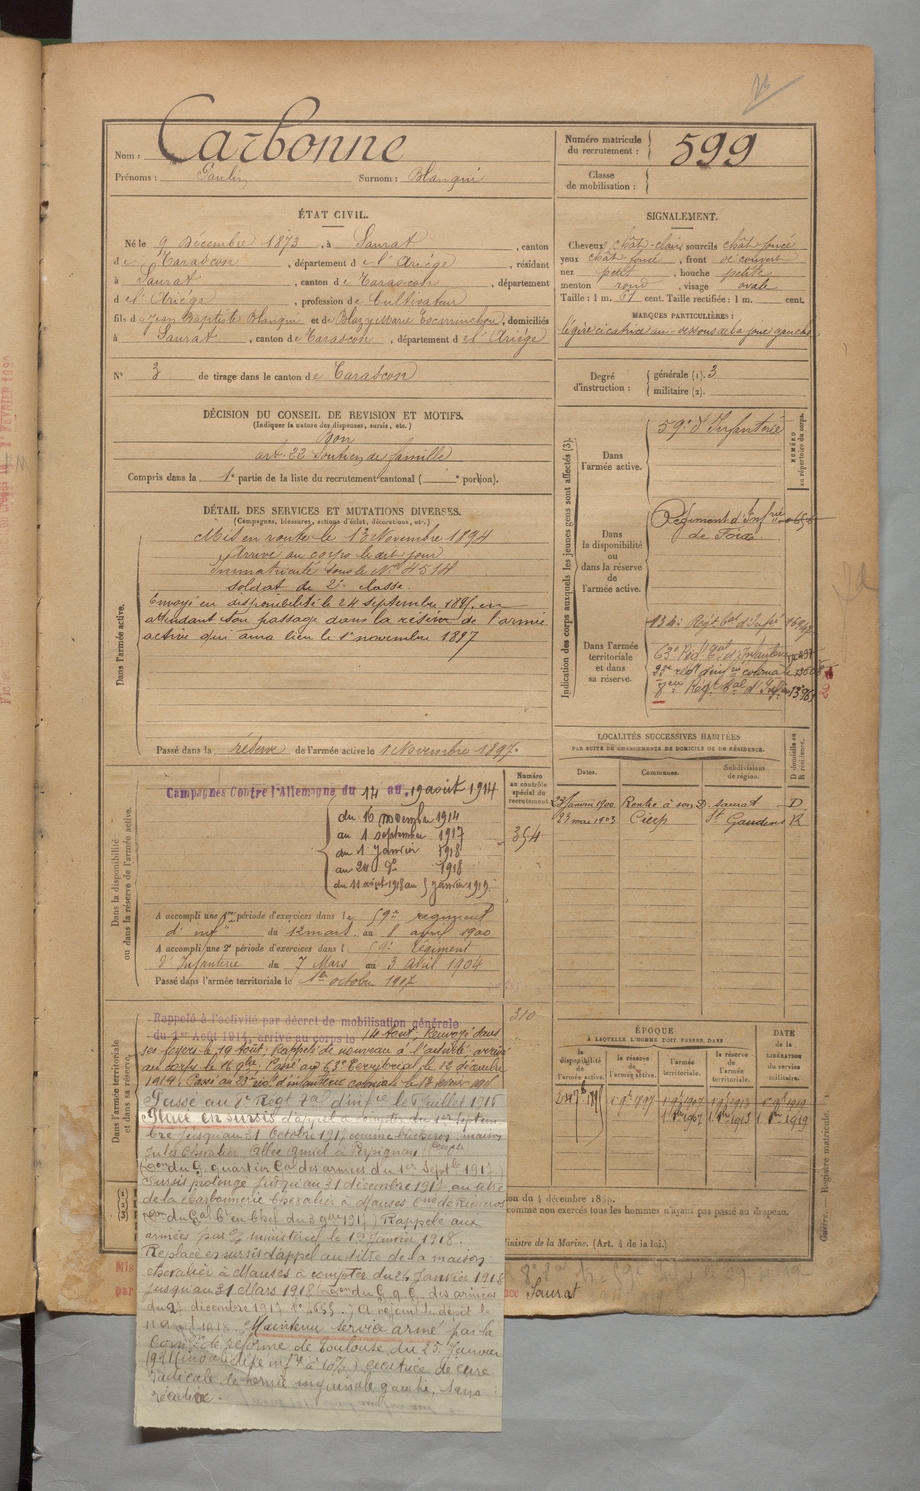 Nom : Carbonne
Prénoms : Paulin Surnom : Blanqui
Numéro matricule du recrutement : 599
Classe de mobilisation :
ÉTAT CIVIL.
Né le 9 Décembre 1873, à Saurat, canton
de Tarascon, département de l'Ariège, résidant
à Saurat, canton de Tarascon, département
de l'Ariège, profession de Cultivateur
fils de Jean Baptiste Blanqui et de Blazy Marie, domiciliés
à Saurat, canton de Tarascon, département de l'Ariège
N° 3 de tirage dans le canton de Tarascon
SIGNALEMENT.
Cheveux chât-clair sourcils chât foncé
yeux chât foncé, front découvert
nez petit, bouche petite
menton rond, visage ovale
Taille : 1 m. 61 cent. Taille rectifiée : 1 m. cent.
MARQUES PARTICULIÈRES :
légère cicatrice au-dessous de la joue gauche
Degré d'instruction : générale (1). 3
militaire (2).
DÉCISION DU CONSEIL DE REVISION ET MOTIFS.
(Indiquer la nature des dispenses, sursis, etc.)
Bon
art. 22 Soutien de famille
Compris dans la 1e partie de la liste du recrutement cantonal ( e portion).
DÉTAIL DES SERVICES ET MUTATIONS DIVERSES.
(Campagnes, blessures, actions d'éclat, décorations, etc.)
Dans l'armée active.
Mis en route le 13 Novembre 1894
Arrivé au corps le dit jour
Immatriculé sous le No 4514
soldat de 2e classe.
Envoyé en disponibilité le 24 septembre 1897, en
attendant son passage dans la réserve de l'armée
active qui aura lieu le 1er novembre 1897
Passé dans la réserve de l'armée active le 1 Novembre 1897.
Indication des corps auxquels les jeunes gens sont affectés (3).
NUMÉRO au répertoire du corps.
Dans l'armée active.
59e d'Infanterie
Dans la disponibilité ou dans la réserve de l'armée active.
Régiment d'Infrie
de Foix
Dans l'armée territoriale et dans sa réserve.
134e Régt tal d'Infie
63e
colonial
7e Régt tal d'Infie
LOCALITÉS SUCCESSIVES HABITÉES
PAR SUITE DE CHANGEMENTS DE DOMICILE OU DE RÉSIDENCE.
Dates. Communes. Subdivisions de région. D domicile ou R résidence.
23 Janvier 1900 Rentre à son D. Saurat D
23 mai 1903 Cierp St Gaudens R
Dans la disponibilité ou dans la réserve de l'armée active.
Numéro au contrôle spécial du recrutement
354
Campagnes Contre l'Allemagne du 14 au 19 août 1914
du 16 novembre 1914
au 1 septembre 1917
du 1 Janvier 1918
au 24 do 1918
du 11 août 1918 au 5 Janvier 1919.
A accompli une 1re période d'exercices dans le 59e régiment
d'infie du 12 mars au 8 avril 1900
A accompli une 2e période d'exercices dans le 59e Régiment
d'Infanterie du 7 Mars au 3 Avril 1904
Passé dans l'armée territoriale le 1er octobre 1907
Dans l'armée territoriale et dans sa réserve.
310
Rappelé à l'activité par décret de mobilisation générale
du 1er Août 1914, arrivé au corps le 14 août, Renvoyé dans
ses foyers le 19 août. Rappelé de nouveau à l'activité arrivé
au corps le 16 9bre. Passé au 63e Territorial le 12 décembre
1914. Passé au d'infanterie coloniale le
Passé au 7e Régt Tal d'infie le 1 juillet 1916
Placé en sursis d'appel à compter du 1er septem-
bre jusqu'au 31 octobre 1917 comme bûcheron, maison
Jules Chevalier allée Amiel à Perpignan
(Don du G. quartier Gal des armées du 1er Septbre 1917)
Sursis prolongé jusqu'au 31 décembre 1917 au titre
de la charbonnerie Chevalier à Mauses
Rappelé aux
armées le 1er Janvier 1918.
Replacé en sursis d'appel au titre de la maison
chevalier à Mauses à compter du 24 Janvier 1918
jusqu'au 31 Mars 1918 (Don du G. Q. G. des armées
du décembre 1917 A rejoint le dépôt le
11 août 1918. Maintenu service armé par la
Comon de réforme de Toulouse du 25 Janvier
1921 (invalidité infre à 10%) cicatrice de cure
radicale de hernie inguinale gauche, sans
récidive.
ÉPOQUE
À LAQUELLE L'HOMME DOIT PASSER DANS
la disponibilité de l'armée active. la réserve de l'armée active. l'armée territoriale. la réserve de l'armée territoriale. DATE de la LIBÉRATION du service militaire.
1 9bre 1897 1 9bre 1907 1 9bre 1913 1 9bre 1919
1 8bre 1907 1 8bre 1913 1 8bre 1919
comme non exercés tous les hommes n'ayant pas passé au drapeau.
Ministre de la Marine. (Art. 4 de la loi.)
Registre matricule.
Saurat